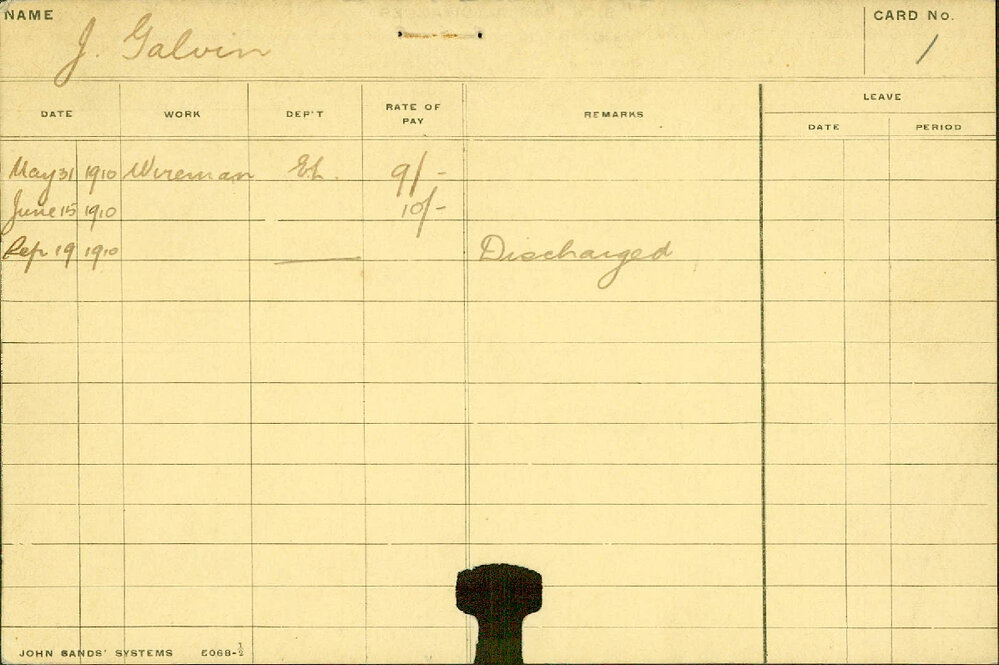 NAME J. Galvin CARD No. 1
LEAVE
DATE WORK DEP'T RATE OF PAY REMARKS DATE PERIOD
May 31 1910 Wireman EL. 9/-
June 15 1910 10/-
Sep 19 1910 Discharged
JOHN SANDS' SYSTEMS E068-½